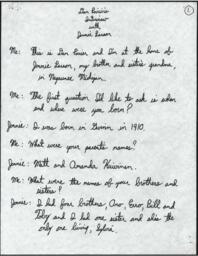 Dan
Interview
with
Jennie Larson
1
Me: This is Dan and I'm at the home of
Jennie Larson, my brother and sister's grandma,
in Negaunee, Michigan.
Me: The first question I'd like to ask is when
and where were you born?
Jennie: I was born in Gwinn in 1910.
Me: What were your parents names?
Jennie: Matt and Amanda
Me: What were the names of your brothers and
sisters?
Jennie: I had four brothers, Arvo, Eino, Bill and
Toby and I had one sister and she's the
only one living, Sylvia.